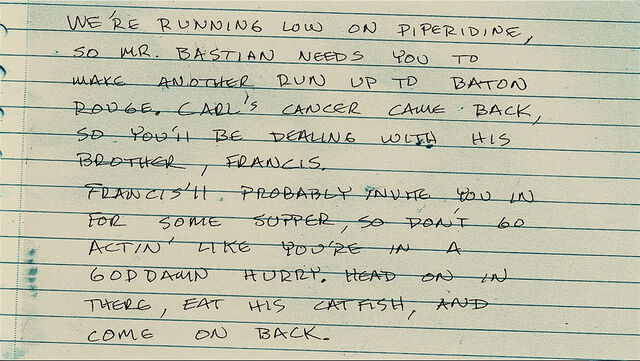 WE'RE RUNNING LOW ON PIPERIDINE,
SO MR. BASTIAN NEEDS YOU TO
MAKE ANOTHER RUN UP TO BATON
ROUGE. CARL'S CANCER CAME BACK,
SO YOU'll BE DEALING WITH HIS
BROTHER, FRANCIS.
FRANCIS'll PROBABLY INVITE YOU IN
FOR SOME SUPPER, SO DON'T GO
ACTIN' LIKE YOU'RE IN A
GODDAMN HURRY. HEAD ON IN
THERE, EAT HIS CATFISH, AND
COME ON BACK.